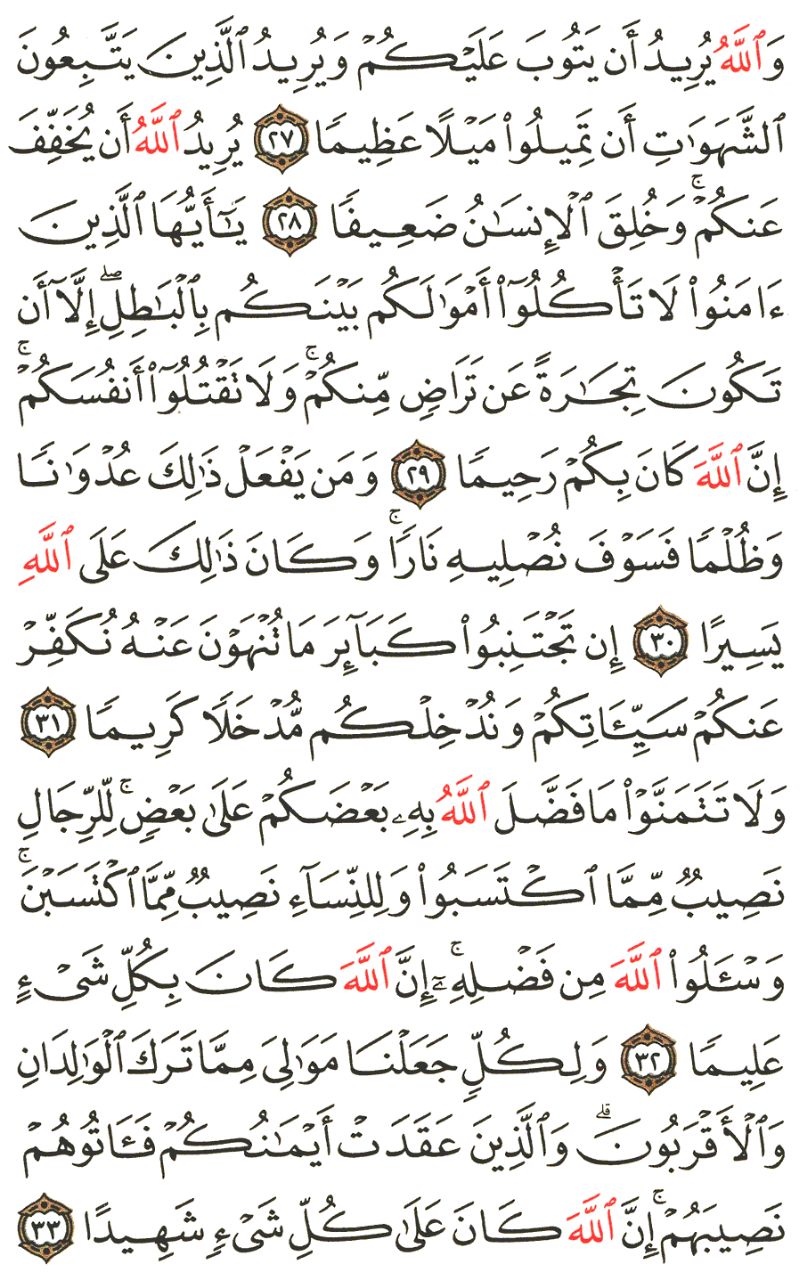 وَٱللَّهُ يُرِيدُ أَن يَتُوبَ عَلَيۡكُمۡ وَيُرِيدُ ٱلَّذِينَ يَتَّبِعُونَ
ٱلشَّهَوَٰتِ أَن تَمِيلُواْ مَيۡلًا عَظِيمٗا ٢٧ يُرِيدُ ٱللَّهُ أَن يُخَفِّفَ
عَنكُمۡۚ وَخُلِقَ ٱلۡإِنسَٰنُ ضَعِيفٗا ٢٨ يَٰٓأَيُّهَا ٱلَّذِينَ
ءَامَنُواْ لَا تَأۡكُلُوٓاْ أَمۡوَٰلَكُم بَيۡنَكُم بِٱلۡبَٰطِلِ إِلَّآ أَن
تَكُونَ تِجَٰرَةً عَن تَرَاضٖ مِّنكُمۡۚ وَلَا تَقۡتُلُوٓاْ أَنفُسَكُمۡۚ
إِنَّ ٱللَّهَ كَانَ بِكُمۡ رَحِيمٗا ٢٩ وَمَن يَفۡعَلۡ ذَٰلِكَ عُدۡوَٰنٗا
وَظُلۡمٗا فَسَوۡفَ نُصۡلِيهِ نَارٗاۚ وَكَانَ ذَٰلِكَ عَلَى ٱللَّهِ
يَسِيرًا ٣٠ إِن تَجۡتَنِبُواْ كَبَآئِرَ مَا تُنۡهَوۡنَ عَنۡهُ نُكَفِّرۡ
عَنكُمۡ سَيِّـَٔاتِكُمۡ وَنُدۡخِلۡكُم مُّدۡخَلٗا كَرِيمٗا ٣١
وَلَا تَتَمَنَّوۡاْ مَا فَضَّلَ ٱللَّهُ بِهِۦ بَعۡضَكُمۡ عَلَىٰ بَعۡضٖۚ لِّلرِّجَالِ
نَصِيبٞ مِّمَّا ٱكۡتَسَبُواْۖ وَلِلنِّسَآءِ نَصِيبٞ مِّمَّا ٱكۡتَسَبۡنَۚ
وَسۡـَٔلُواْ ٱللَّهَ مِن فَضۡلِهِۦٓۚ إِنَّ ٱللَّهَ كَانَ بِكُلِّ شَيۡءٍ
عَلِيمٗا ٣٢ وَلِكُلّٖ جَعَلۡنَا مَوَٰلِيَ مِمَّا تَرَكَ ٱلۡوَٰلِدَانِ
وَٱلۡأَقۡرَبُونَۗ وَٱلَّذِينَ عَقَدَتۡ أَيۡمَٰنُكُمۡ فَـَٔاتُوهُمۡ
نَصِيبَهُمۡۚ إِنَّ ٱللَّهَ كَانَ عَلَىٰ كُلِّ شَيۡءٖ شَهِيدًا ٣٣